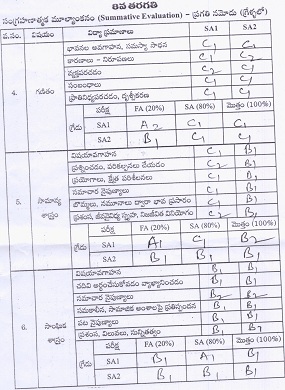 8వ తరగతి
సంగ్రహణాత్మక మూల్యాంకనం (Summative Evaluation) - ప్రగతి నమోదు (గ్రేడ్లలో)
వ.సం. విషయం విద్యా ప్రమాణాలు SA1 SA2
భావనల అవగాహన, సమస్యా సాధన C1 C1
కారణాలు - నిరూపణలు C1 C1
వ్యక్తపరచడం C2 C1
4. గణితం సంబంధాలు C1 C1
ప్రాతినిధ్యపరచడం, దృశ్యీకరణ C1 C1
గ్రేడు పరీక్ష FA (20%) SA (80%) మొత్తం (100%)
SA1 A2 C1 C1
SA2 B1 C1 C1
విషయావగాహన C1 B1
ప్రశ్నించడం, పరికల్పనలు చేయడం C2 B1
ప్రయోగాలు, క్షేత్ర పరిశీలనలు C1 B1
5. సామాన్య శాస్త్రం సమాచార నైపుణ్యాలు C1 B1
బొమ్మలు, నమూనాల ద్వారా భావ ప్రసారం C1 B1
ప్రశంస, జీవవైవిధ్య స్పృహ, నిజజీవిత వినియోగం C2 B1
గ్రేడు పరీక్ష FA (20%) SA (80%) మొత్తం (100%)
SA1 A1 C1 B2
SA2 B1 B1 B1
విషయావగాహన B1 B1
చదివి అర్థంచేసుకోవడం వ్యాఖ్యానించడం B1 B1
సమాచార నైపుణ్యాలు B2 B1
6. సాంఘిక శాస్త్రం సమకాలీన, సామాజిక అంశాలపై ప్రతిస్పందన B1 B1
పట నైపుణ్యాలు B1 B1
ప్రశంస, విలువలు, సున్నితత్వం B1 B1
గ్రేడు పరీక్ష FA (20%) SA (80%) మొత్తం (100%)
SA1 B1 A1 B1
SA2 B1 B1 B1